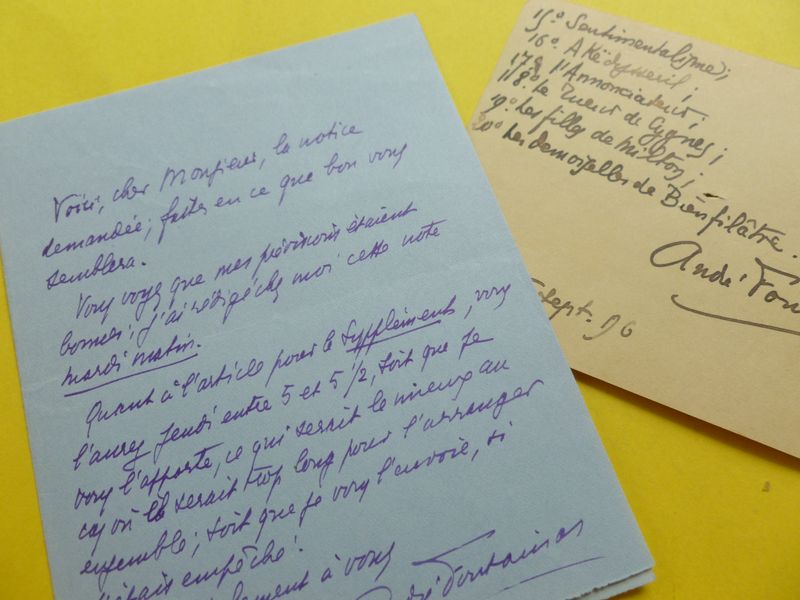 Voici, cher Monsieur, la notice
demandée; faites en ce que bon vous
semblera.
Vous voyez que mes prévisions étaient
bonnes; j'ai rédigé chez moi cette note
mardi matin.
Quant à l'article pour le Supplément, vous
l'aurez Jeudi entre 5 et 5 1/2, soit que je
vous l'apporte, ce qui serait le mieux au
cas où il serait trop long pour l'arranger
ensemble; soit que je vous l'envoie, si
j'étais empêché.
à vous
André Fontainas
15º Sentimental(isme);
16º
17º l'Annonciateur;
18º Le Tueur de Cygnes;
19º Les filles de Milton;
20º Les demoiselles de Bienfilâtre.
André
Sept. 96